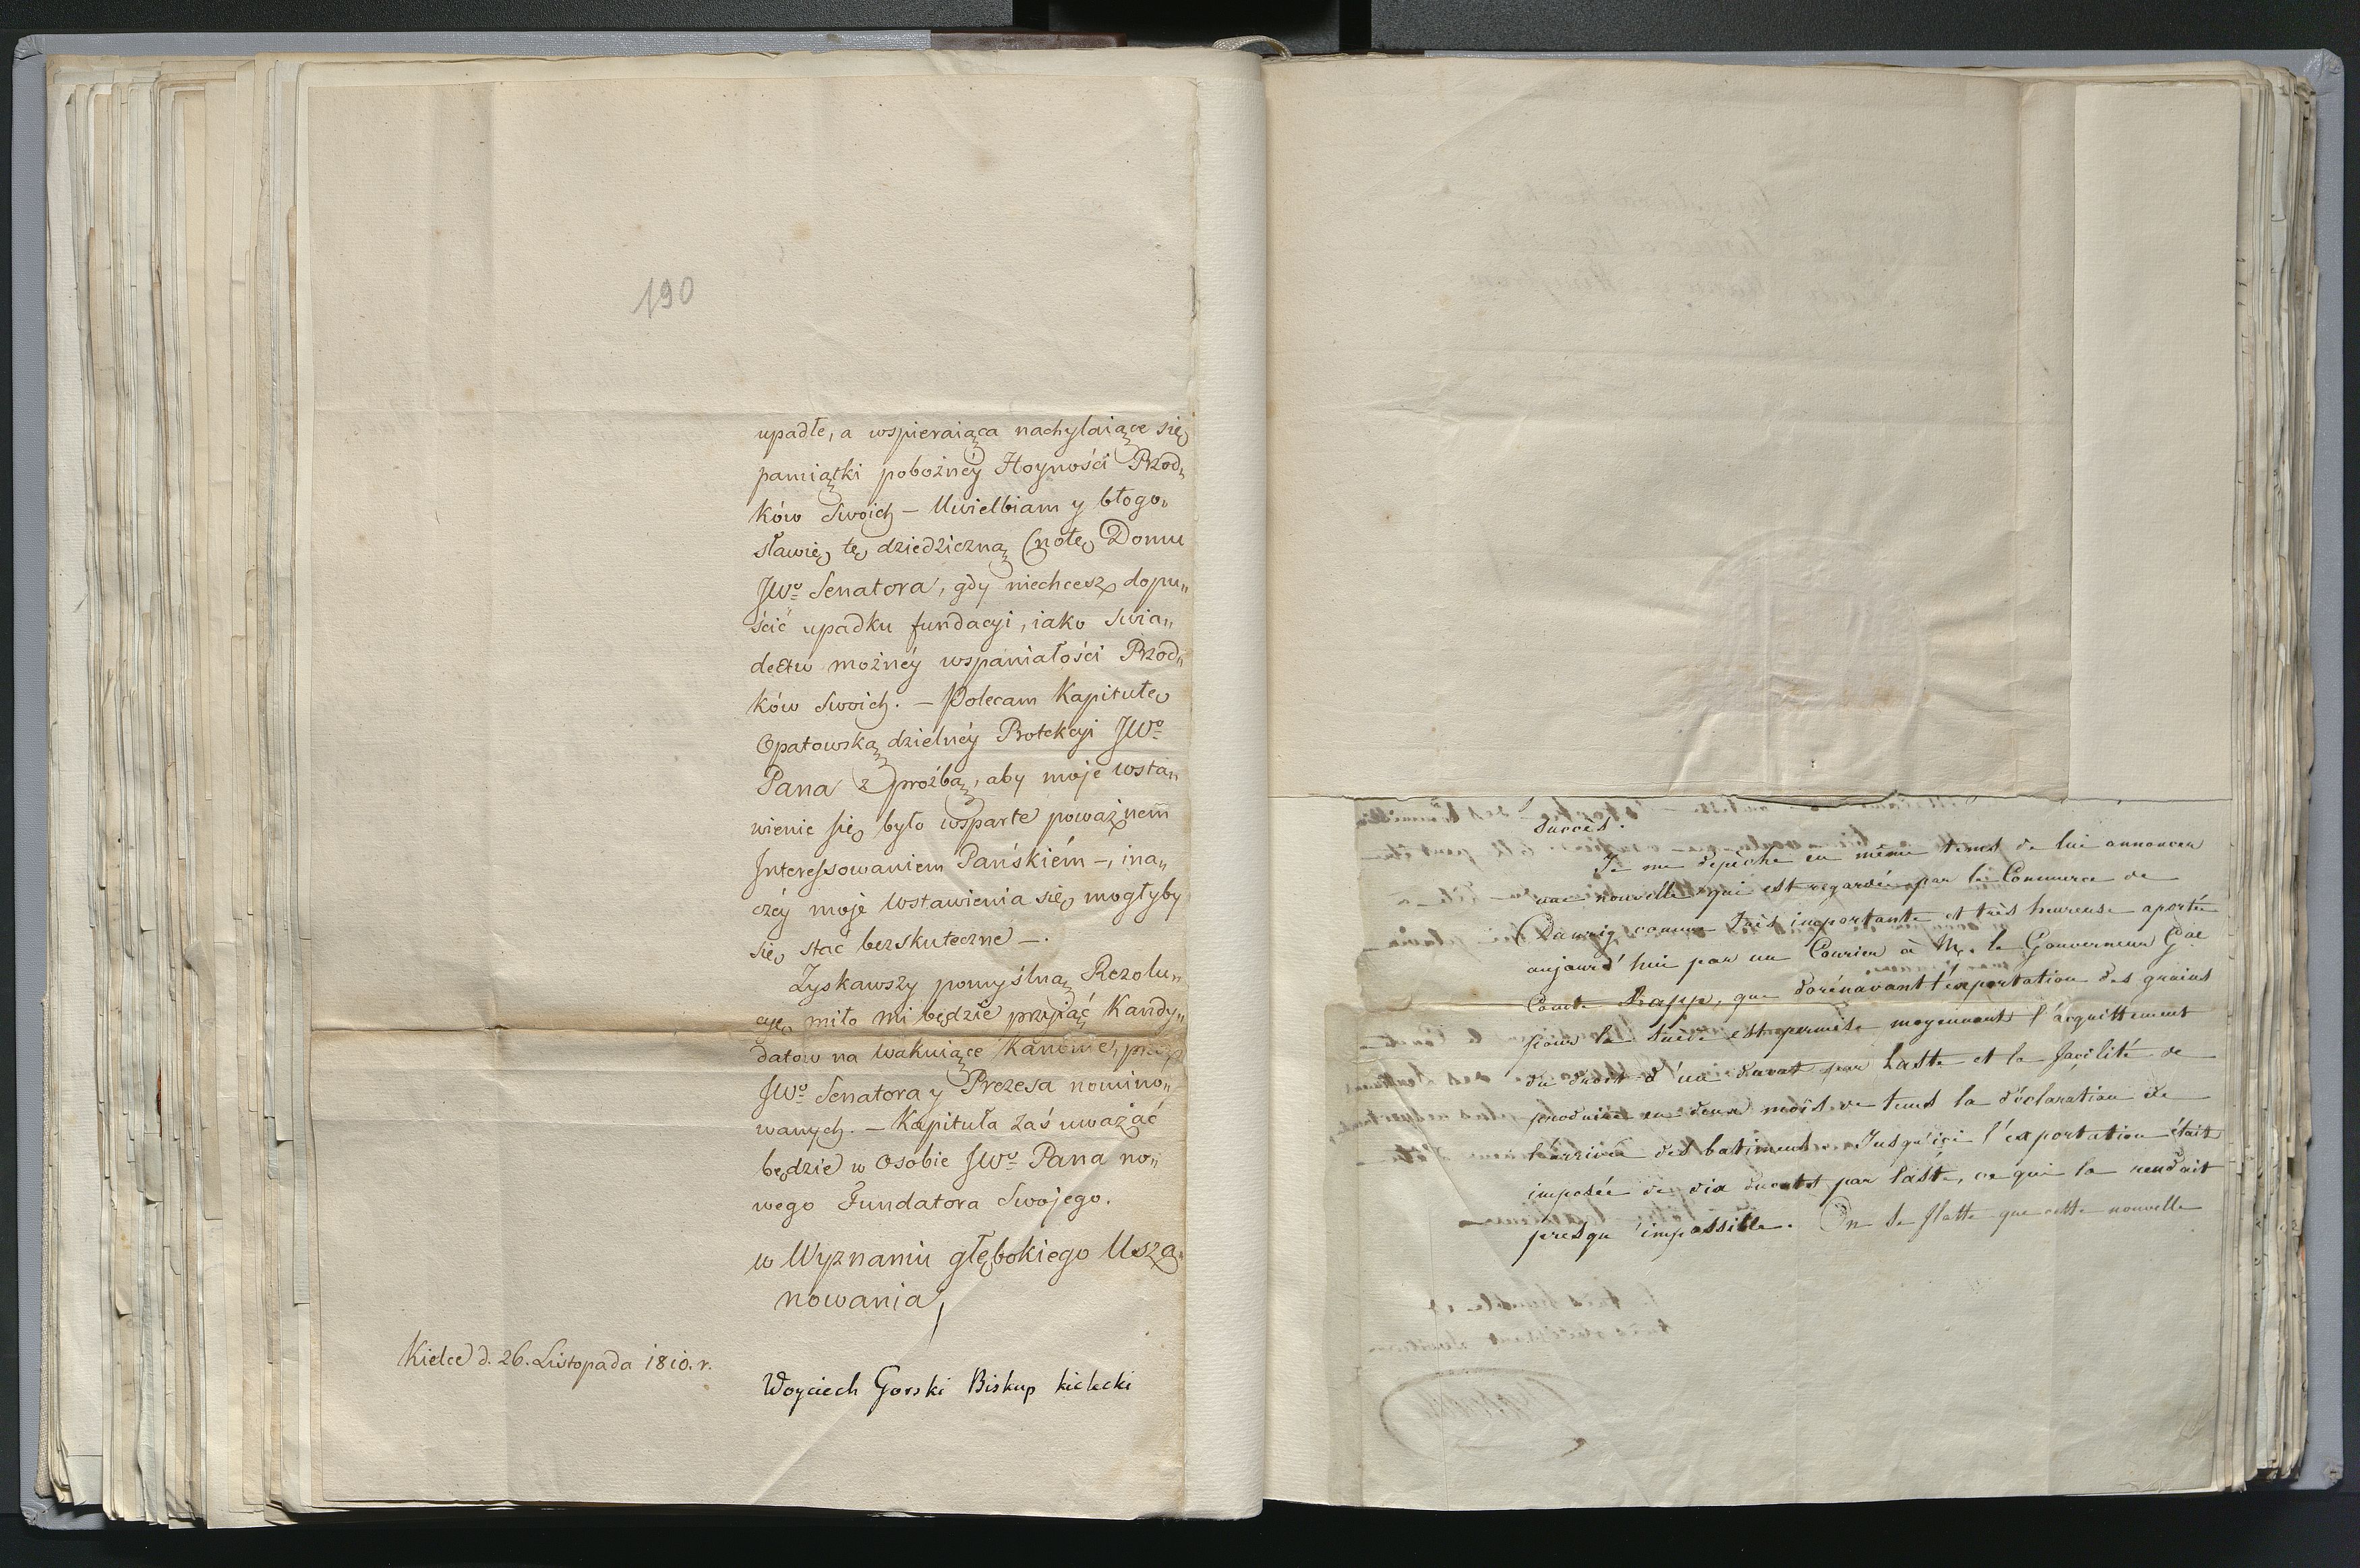 190
upadłe, a wspieraiąca nachylaiące się
pamiątki pobożnéy Hoyności Przod„
ków Swoich – Uwielbiam y błogo„
sławię tę dziedziczną Cnotę Domu
JWo Senatora, gdy niechcesz dopu„
ścić upadku fundacyi, iako Swia„
dectw możnéy wspaniałości Przod„
ków Swoich. – Polecam Kapitułę
Opatowską dzielnéy Protekcyi JWo
Pana z proźbą, aby moje wsta„
wienie się było wsparte poważnem
Interessowaniem Pańskiém –, ina„
czéy moje Wstawienia się mogłyby
się stać bezskuteczne –.
Zyskawszy pomyślną Rezolu„
cyę miło mi będzie przyiąć Kandy„
datow na wakuiące Kanonie, przez
JWo Senatora y Prezesa nomino„
wanych. – Kapituła zaś uważać
będzie w Osobie JWo Pana no„
wego Fundatora Swojego.
w Wyznaniu głębokiego Usza„
nowania,
Kielce d. 26. Listopada 1810. r.
Woyciech Gorski Biskup kielecki
succès.
Je me depêche en même tems de lui annoncer
une nouvelle qui est regardée par le Commerce de
Danzig comme très importante et très heureuse aportée
aujourd'hui par un Courier à Mr. le Gouverneur Gal
Comte Rapp, que dorénavant l'exportation des grains
pour la Suède est permise moyennant l'acquittement
du droit d'un ducat par Laste et la facilité de
produire en deux mois de tems la déclaration de
l'arrivée des batimens. Jusqu'ici l'exportation était
imposée de dix ducats par laste, ce qui la rendait
presqu'impossible. On se flatte que cette nouvelle